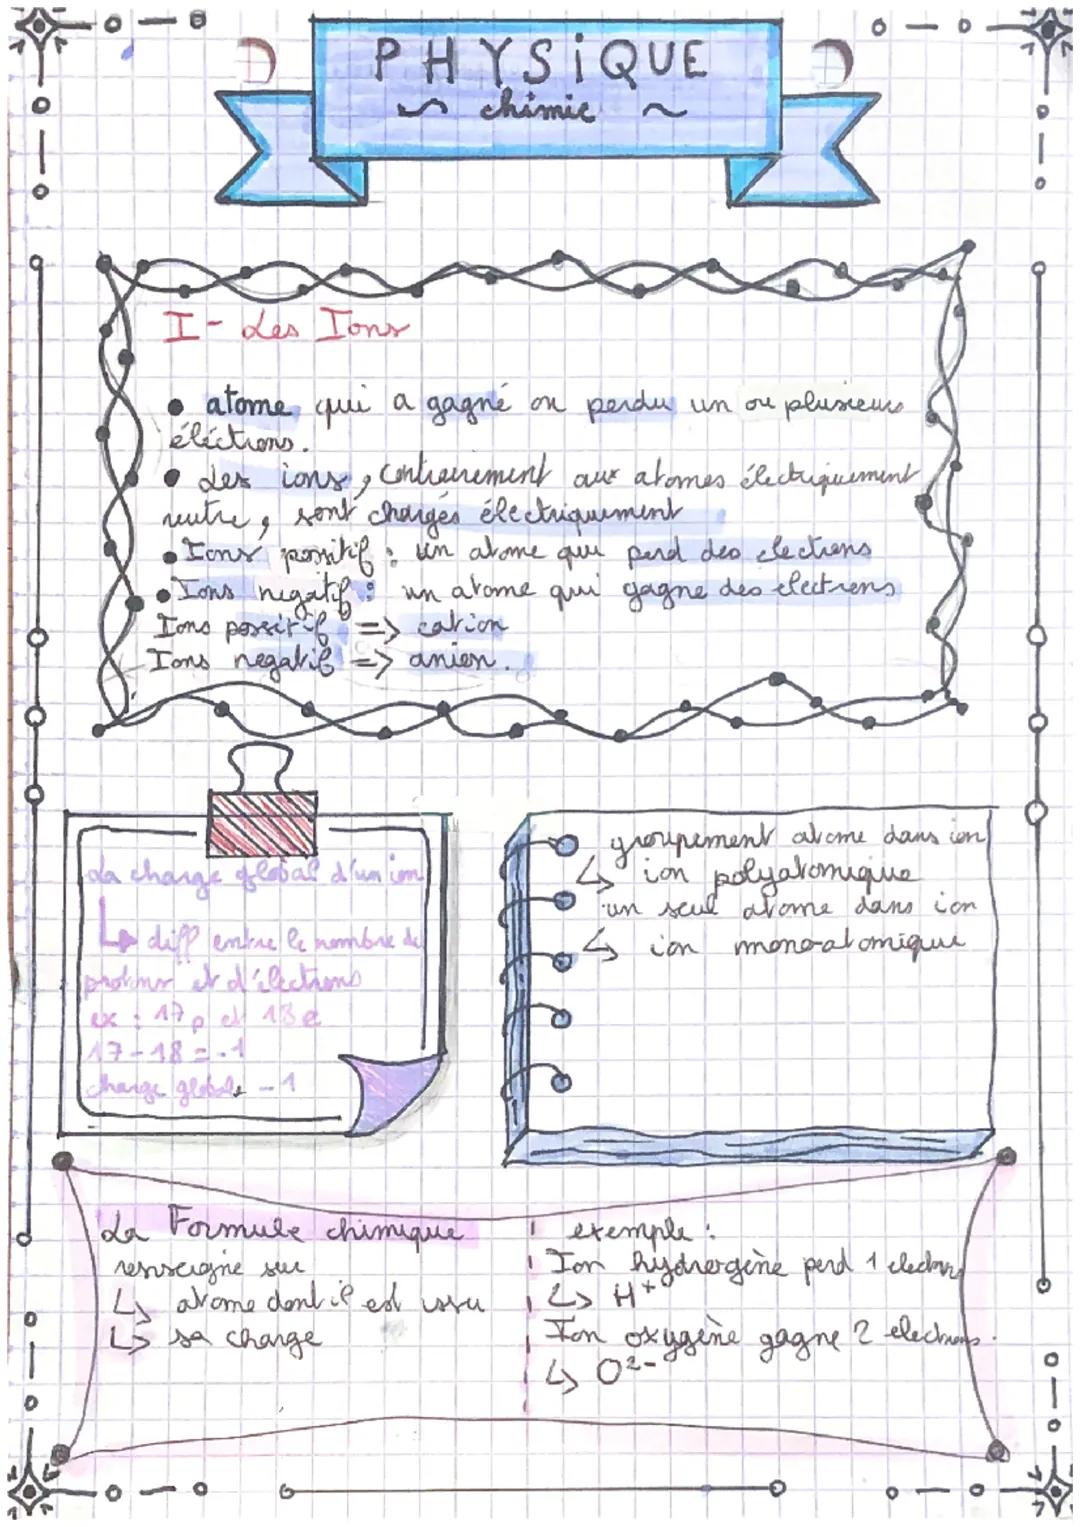 PHYSIQUE
chimie
I - Les Ions
• atome qui a gagné ou perdu un ou plusieurs
éléctrons.
• Les ions, contrairement aux atomes électriquement
neutre, sont chargés électriquement
• Ions positif : un atome qui perd des electrons
• Ions negatif : un atome qui gagne des electrons
Ions possitif => cation
Ions negatif => anion.
La charge global d'un ion
↳ diff entre le nombre de
protons et d'électrons
ex : 17 p et 18 e
17 - 18 = -1
charge globale -1
groupement atome dans ion
↳ ion polyatomique
un seul atome dans ion
↳ ion mono-atomique
La Formule chimique
renseigne sur
↳ atome dont il est issu
↳ sa charge
exemple :
Ion hydrergène perd 1 electrons
↳ H⁺
Ion oxygène gagne 2 electrons.
↳ O²⁻